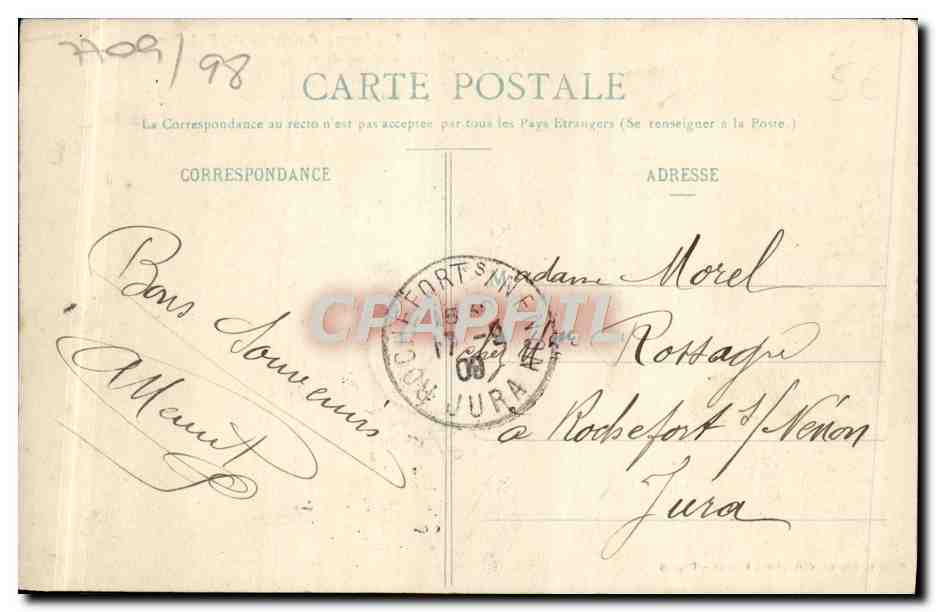 7709/98
CARTE POSTALE
La Correspondance au recto n'est pas acceptée par tous les Pays Etrangers (Se renseigner à la Poste.)
CORRESPONDANCE
ADRESSE
Bons Souvenirs
Madame Morel
chez Mme
Rossagne
a Rochefort s/Nenon
Jura
ROCHEFORT S/NENON
JURA
CPAPHIL